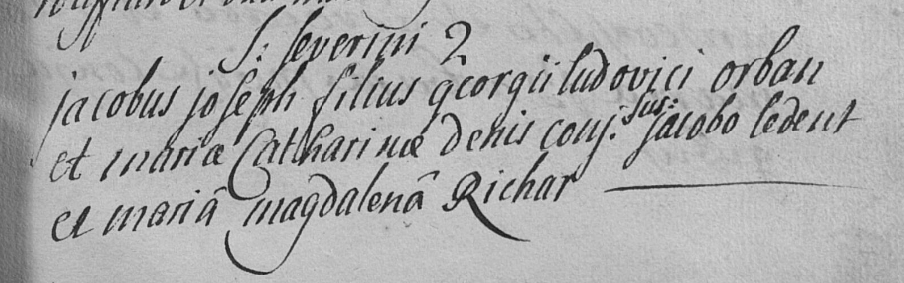 S: Severini 2
jacobus joseph filius georgii ludovici orban
et mariæ Catharinæ denis conj: sus: jacobo ledent
et mariâ magdalenâ Richar